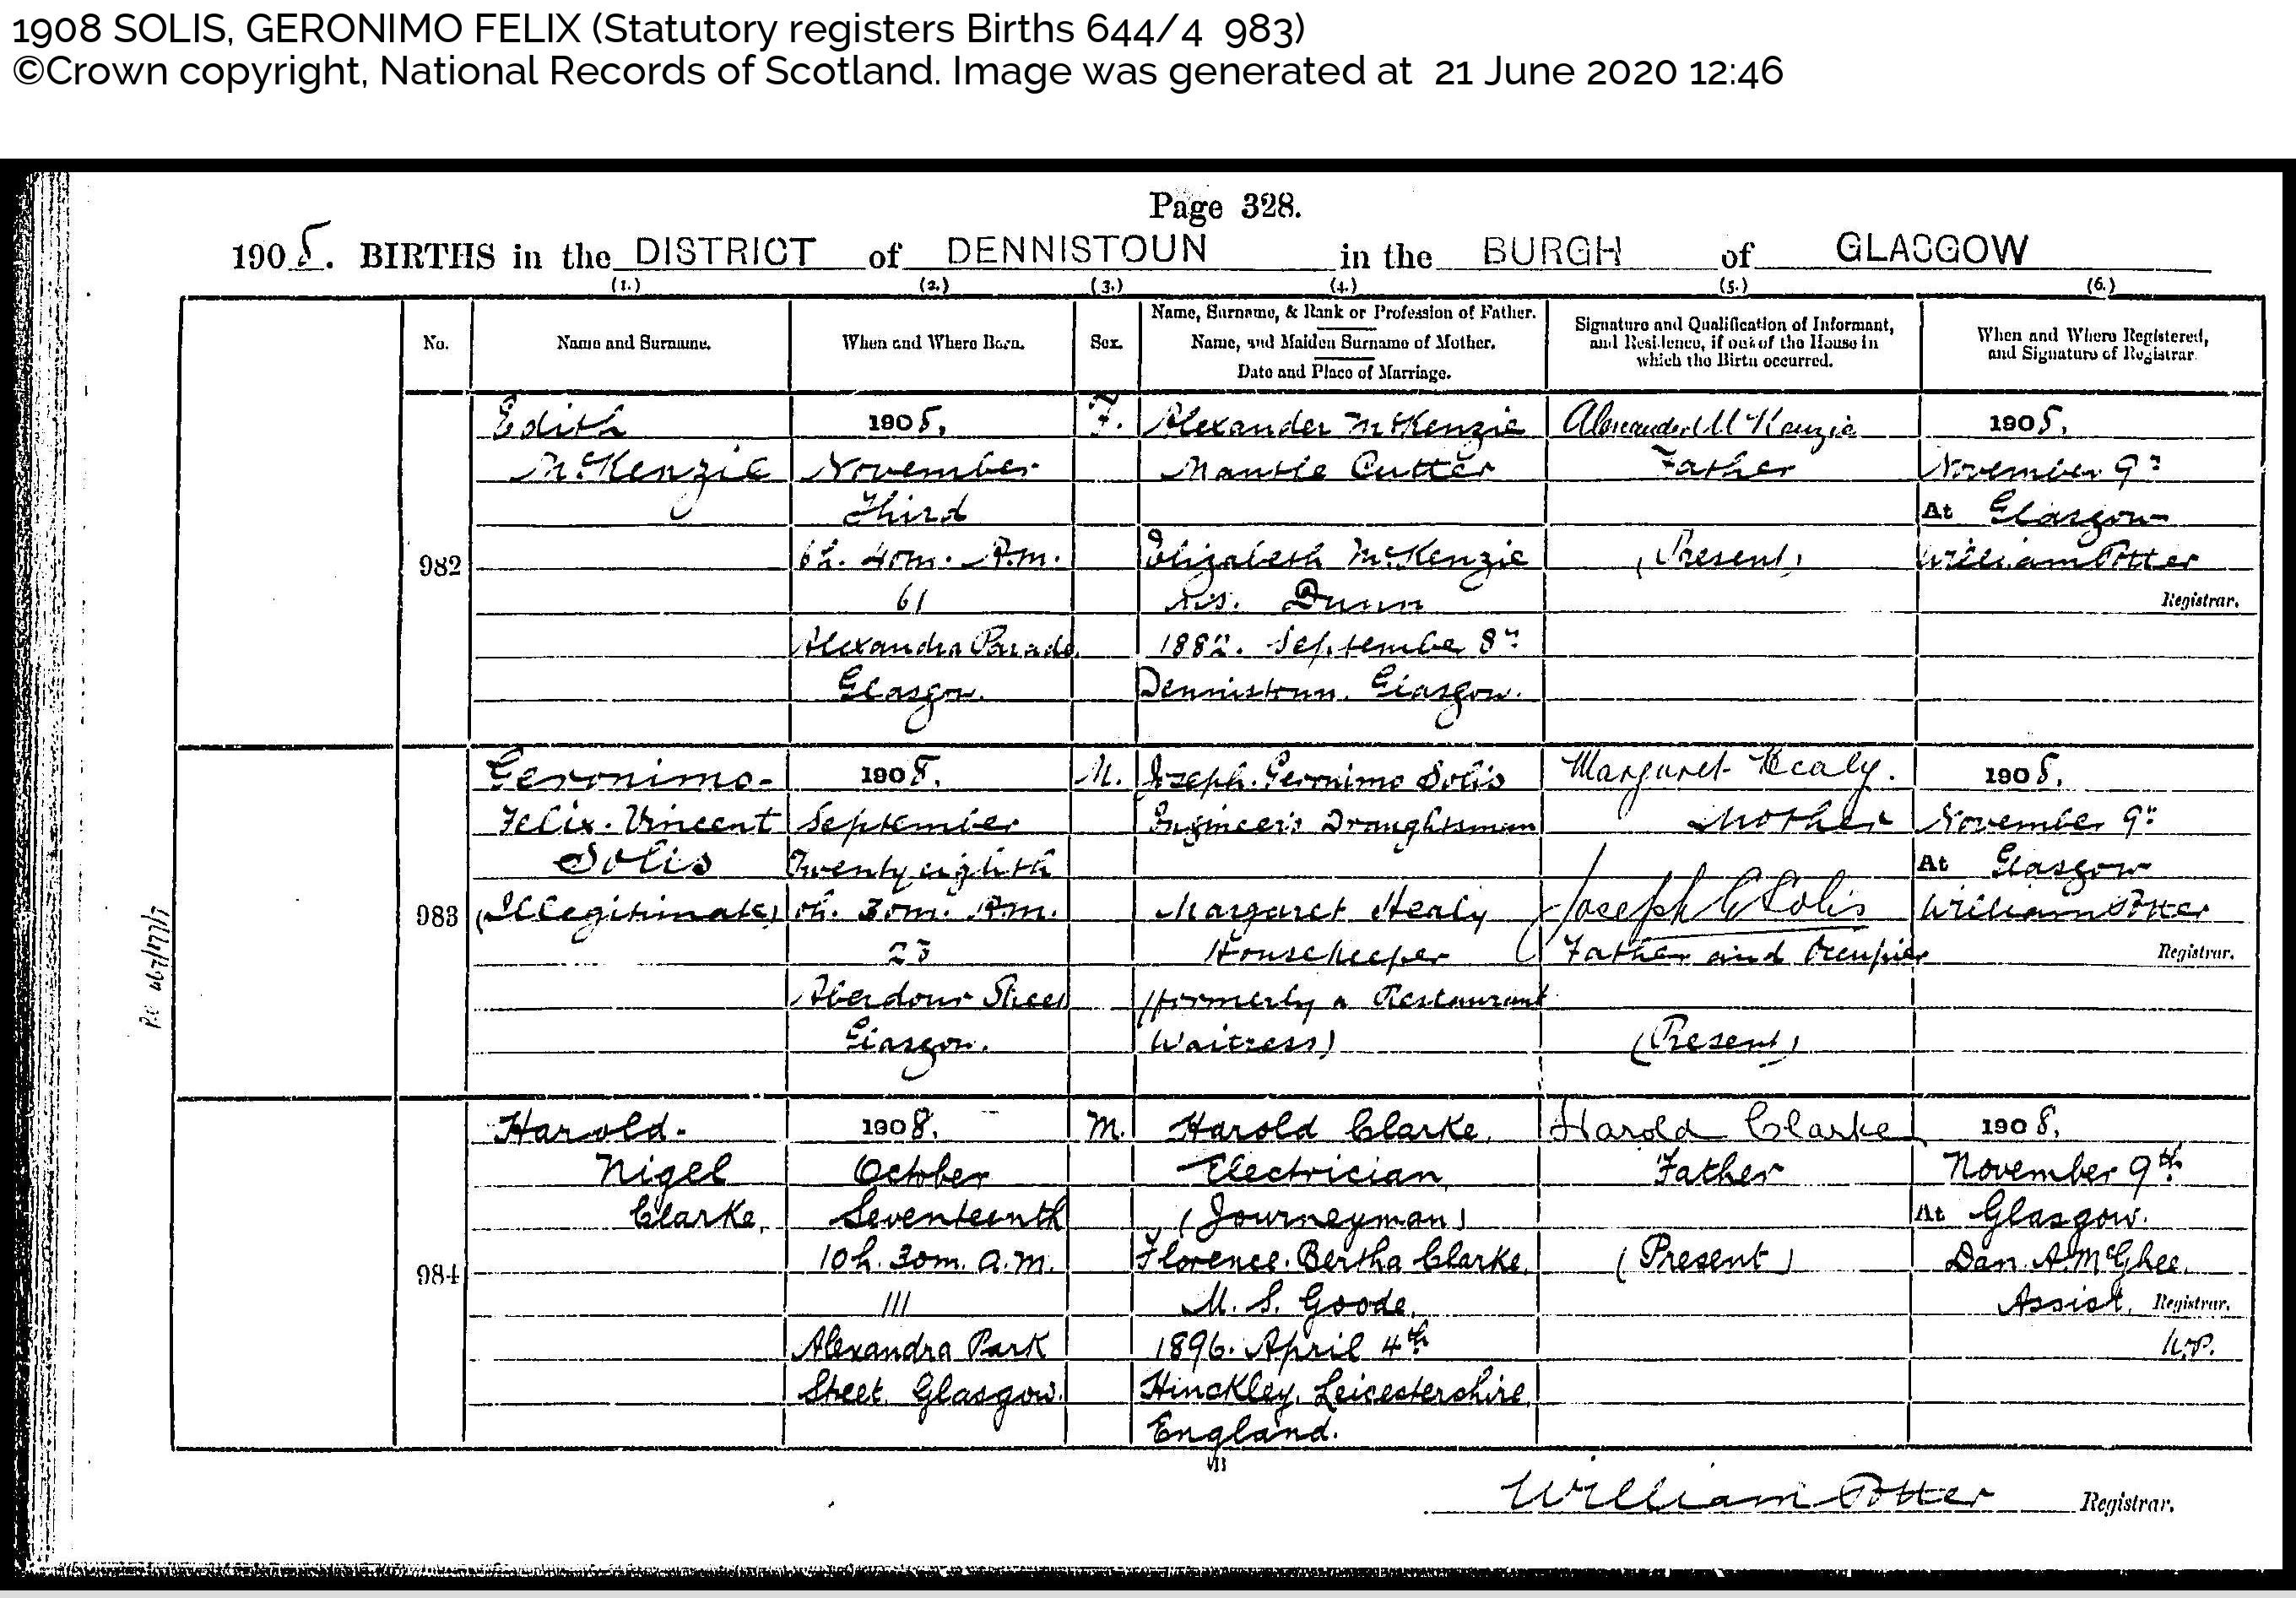 1908 SOLIS, GERONIMO FELIX (Statutory registers Births 644/4 983)
©Crown copyright, National Records of Scotland. Image was generated at 21 June 2020 12:46
Page 328.
1908. BIRTHS in the DISTRICT of DENNISTOUN in the BURGH of GLASGOW
(1.) (2.) (3.) (4.) (5.) (6.)
No.
Name and Surname.
When and Where Born.
Sex.
Name, Surname, & Rank or Profession of Father.
Name, and Maiden Surname of Mother.
Date and Place of Marriage.
Signature and Qualification of Informant,
and Residence, if out of the House in
which the Birth occurred.
When and Where Registered,
and Signature of Registrar.
982
Edith
McKenzie
1908.
November
Third
6h. 40m. A.m.
61
Alexandra Parade
Glasgow.
F.
Alexander McKenzie
Mantle Cutter
Elizabeth McKenzie
M.S. Dunn
1882. September 8th
Dennistoun. Glasgow.
Alexander McKenzie
Father
(Present)
1908.
November 9th
At Glasgow
William Potter
Registrar.
983
Geronimo-
Felix. Vincent
Solis
(Illegitimate)
1908.
September
Twenty eighth
0h. 30m. A.m.
23
Aberdour Street
Glasgow.
M.
Joseph. Geronimo Solis
Engineer's Draughtsman
Margaret Healy
Housekeeper
(formerly a Restaurant
Waitress)
Margaret Healy.
Mother
Joseph G Solis
Father and Occupier
(Present)
1908.
November 9th
At Glasgow
William Potter
Registrar.
984
Harold.
Nigel
Clarke,
1908.
October
Seventeenth
10h. 30m. a.m.
111
Alexandra Park
Street. Glasgow.
M.
Harold Clarke,
Electrician,
(Journeyman)
Florence. Bertha Clarke,
M. S. Goode.
1896. April 4th
Hinckley, Leicestershire,
England.
Harold Clarke
Father
(Present)
1908.
November 9th
At Glasgow.
Dan. A. McGhee.
Assist. Registrar.
W.P.
William Potter Registrar.